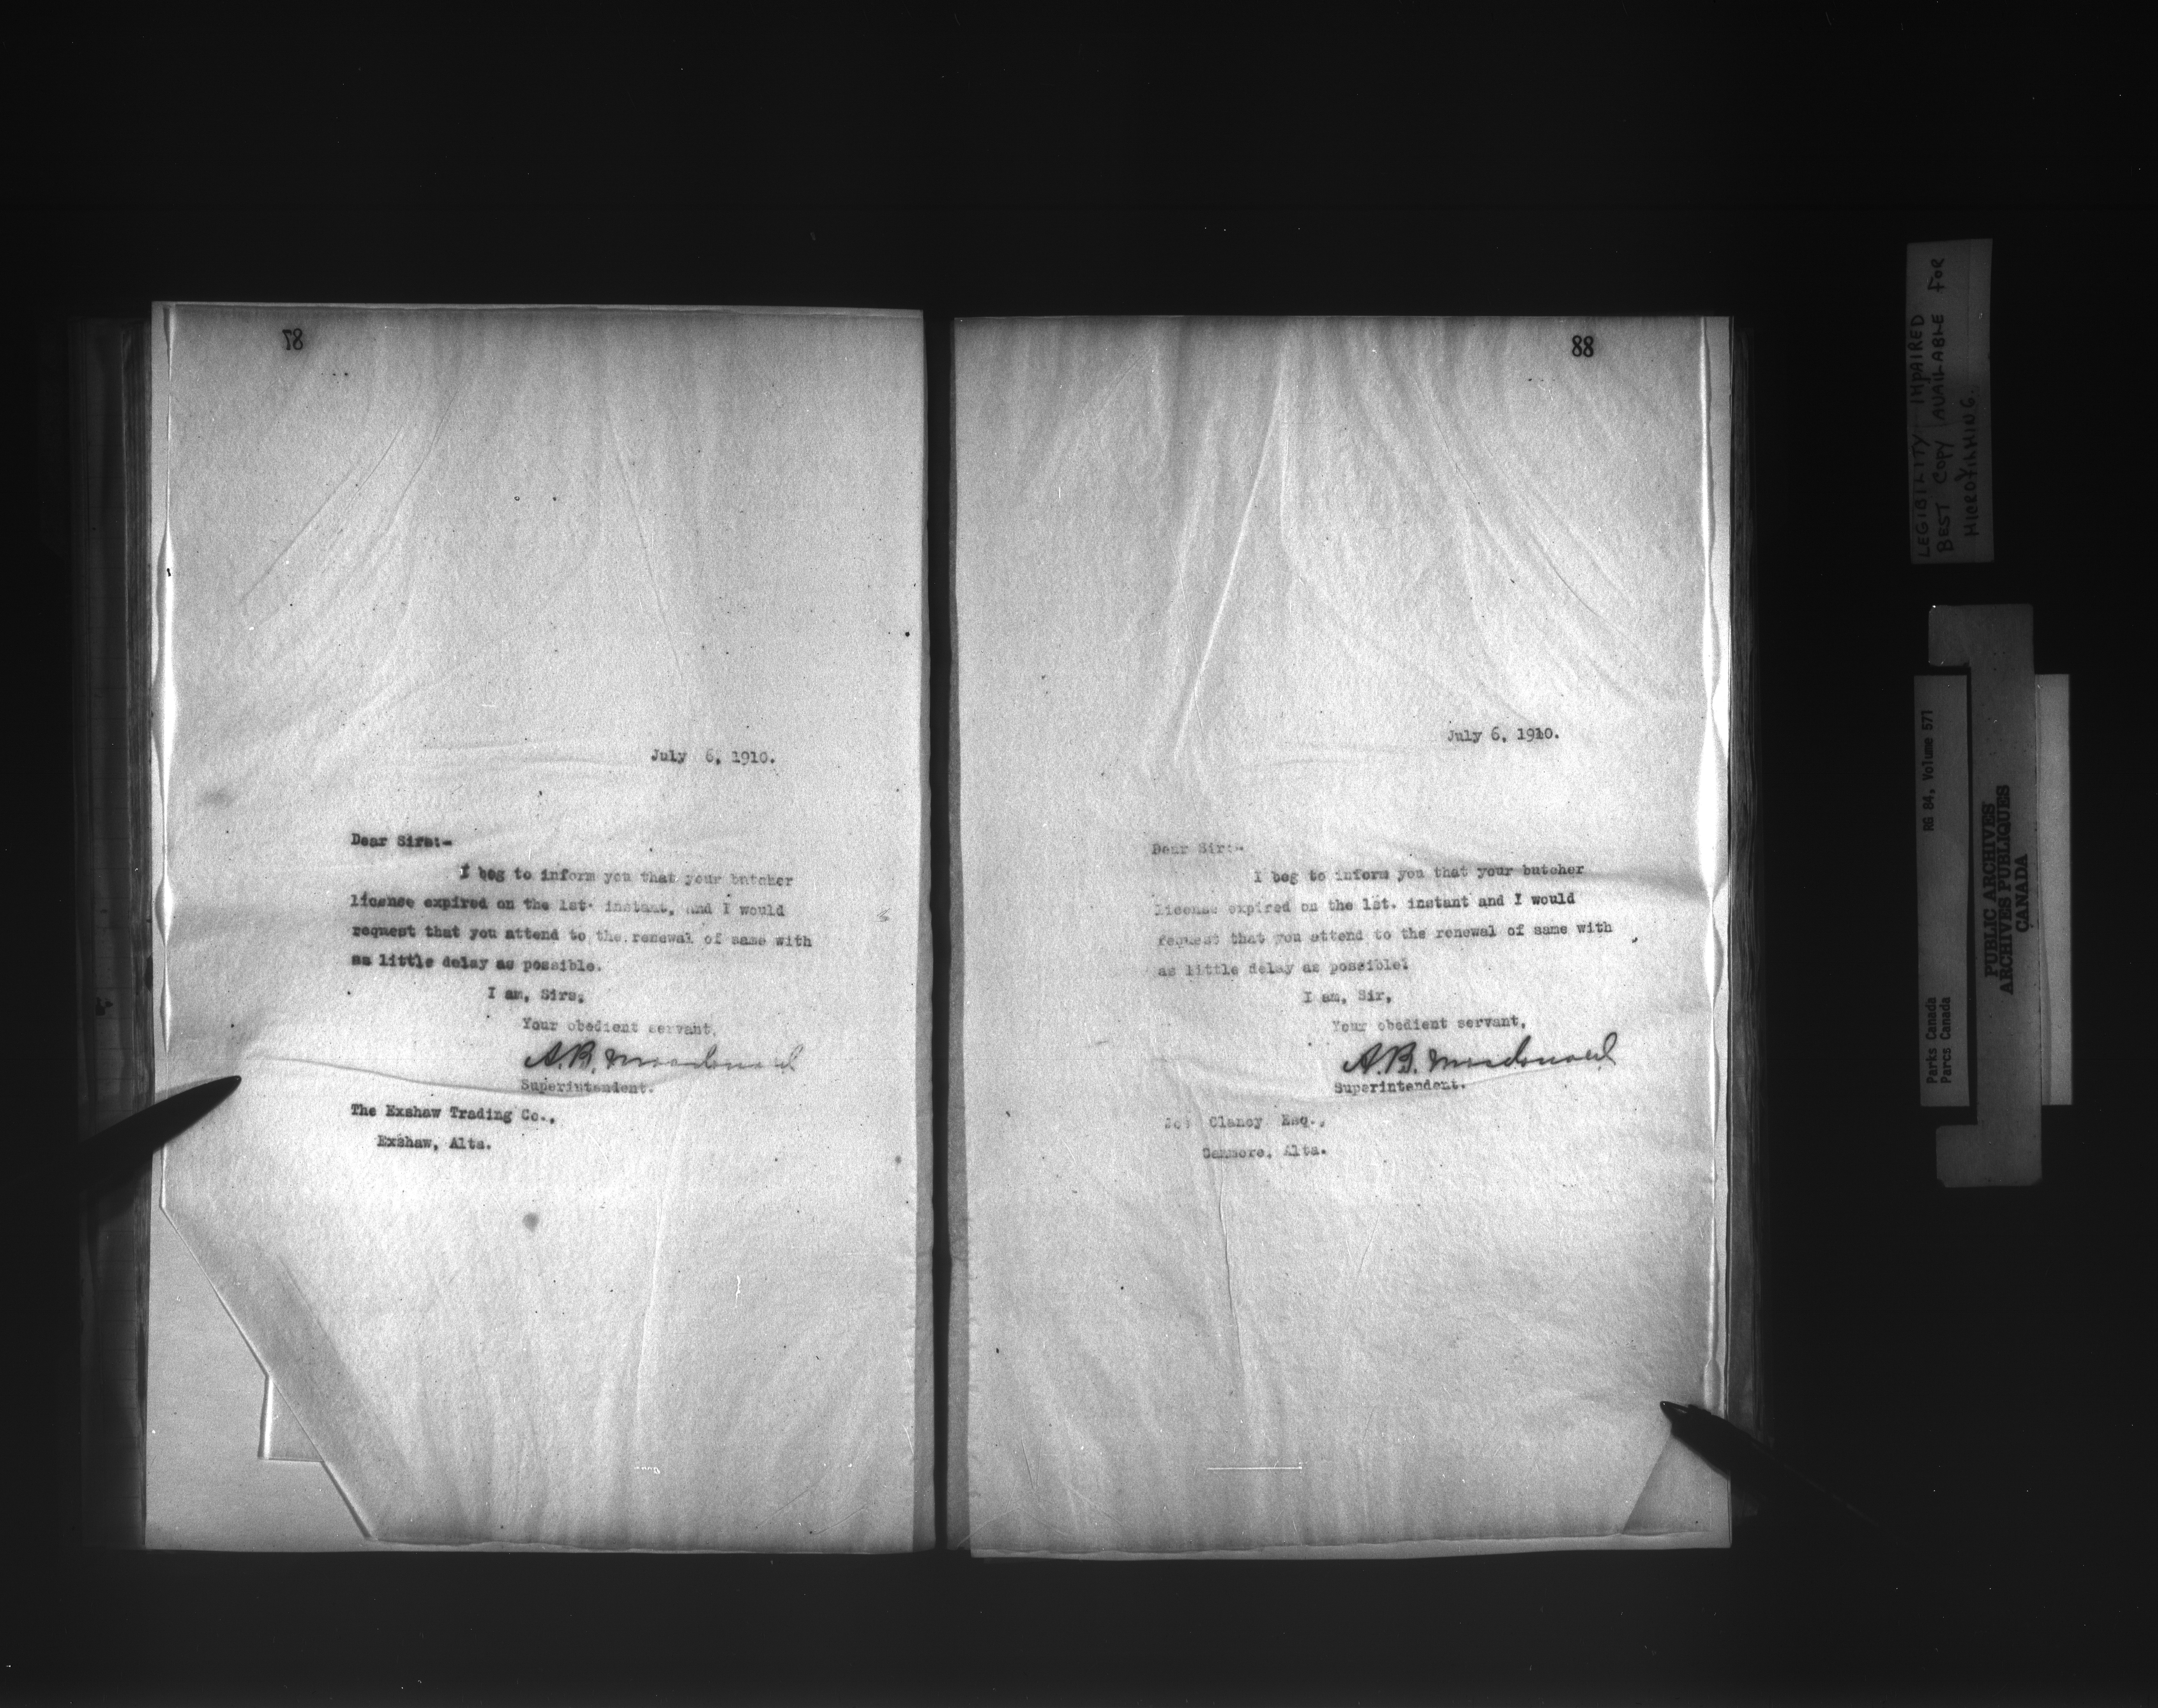 87
July 6, 1910.
Dear Sirs:-
I beg to inform you that your butcher
license expired on the 1st. instant, and I would
request that you attend to the renewal of same with
as little delay as possible.
I am, Sirs,
Your obedient servant,
A.B. Macdonald
Superintendent.
The Exshaw Trading Co.,
Exshaw, Alta.
88
July 6, 1910.
Dear Sir:-
I beg to inform you that your butcher
license expired on the 1st. instant and I would
request that you attend to the renewal of same with
as little delay as possible.
I am, Sir,
Your obedient servant,
A.B. Macdonald
Superintendent.
Clancy Esq.,
Canmore, Alta.
LEGIBILITY IMPAIRED
BEST COPY AVAILABLE FOR
MICROFILMING.
RG 84, Volume 571
Parks Canada
Parcs Canada
PUBLIC ARCHIVES
ARCHIVES PUBLIQUES
CANADA